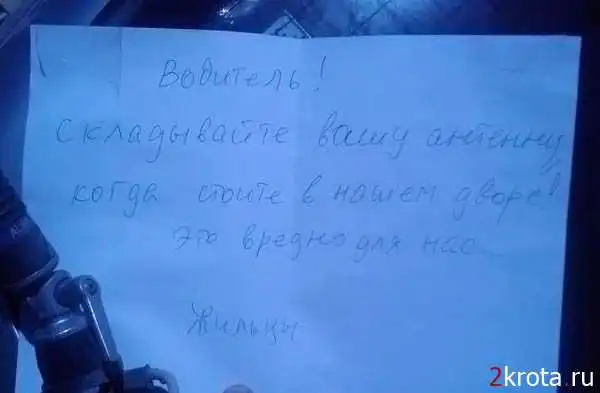 Водитель!
Складывайте вашу антенну
когда стоите в нашем дворе!
Это вредно для нас
Жильцы
2krota.ru